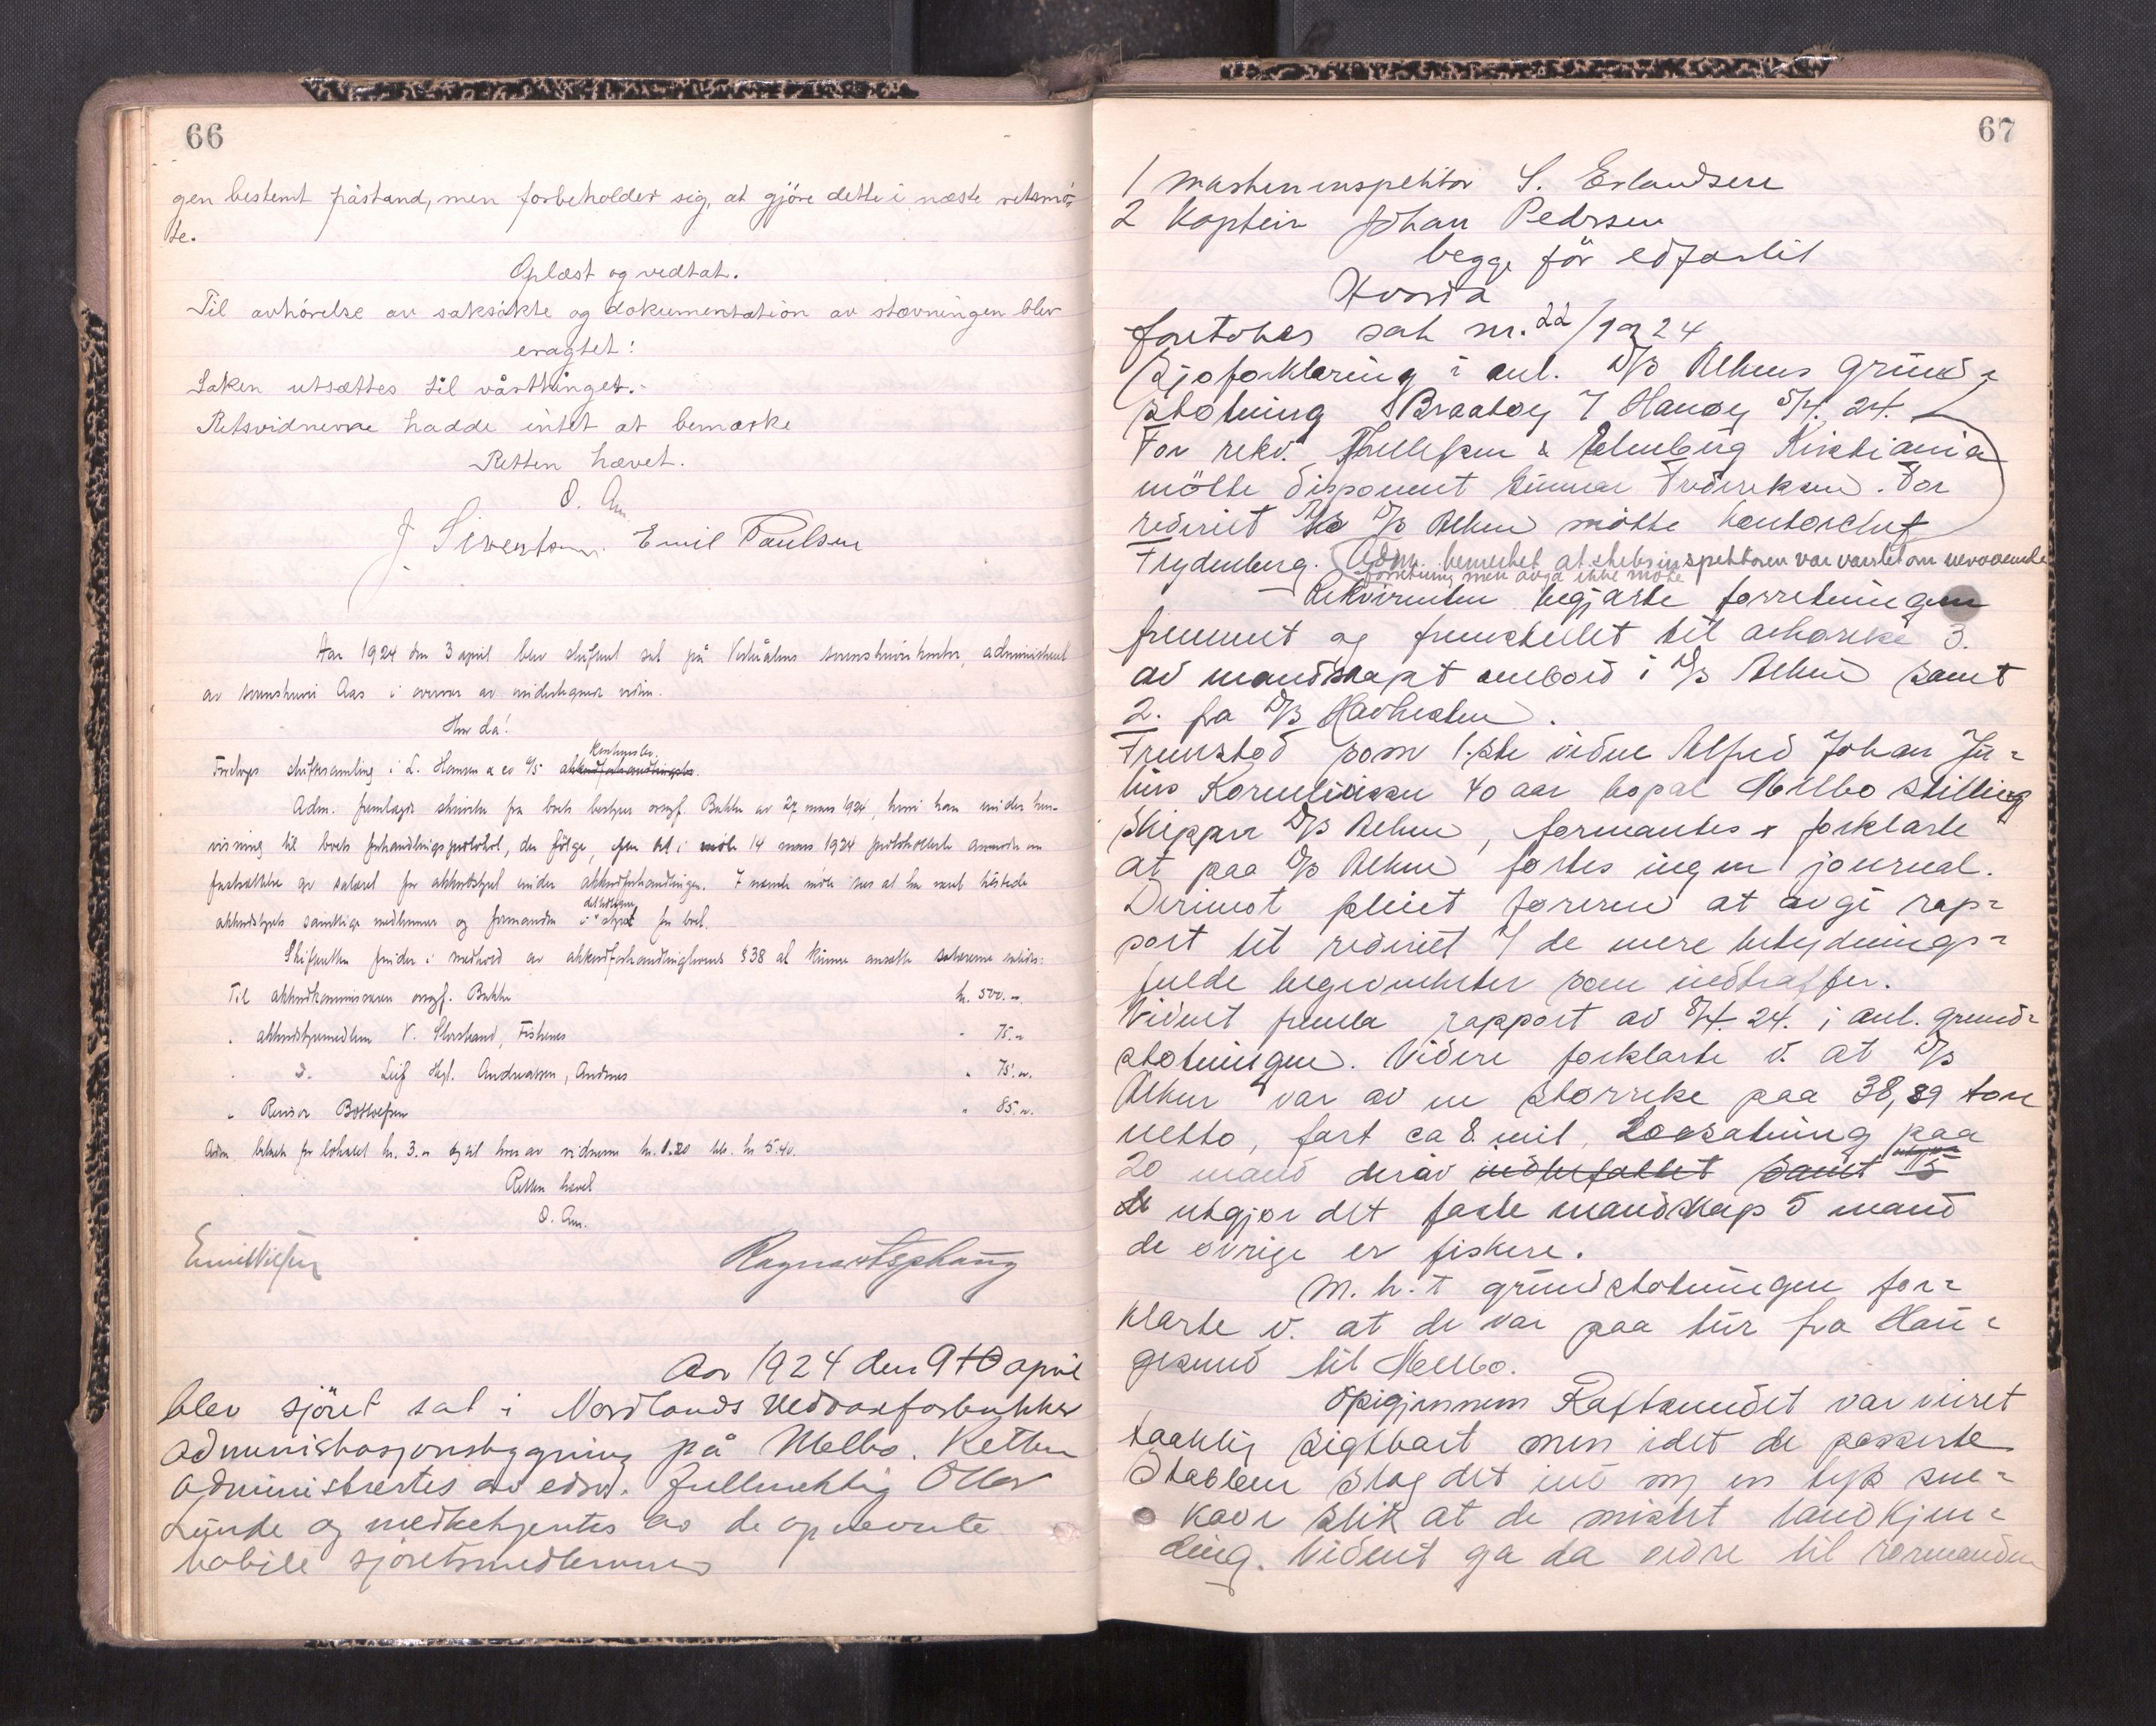 66
gen bestemt påstand, men forbeholder sig, at gjøre dette i næste retsmø-
te.
Oplæst og vedtat.
Til avhørelse av saksøkte og dokumentation av stævningen blev
eragtet:
Saken utsættes til vårthinget.-
Retsvidnerne hadde intet at bemærke
Retten hævet.
O. Aas
J. Sivertsen. Emil Paulsen
Aar 1924 den 3 april blev skifteret sat på Vesterålens sorenskriverkontor, administrert
av sorenskriver Aas i overvær av undertegnede vidner.
Hvorda!
Foretoges skiftesamling i L. Hansen & co %s akkordforhandlingsbo.
konkursbo.
Adm. fremlagde skrivelse fra boets bestyrer overrf. Bakke av 27 mars 1924, hvori han under hen-
visning til boets forhandlingsprotokol, der følger, efter det i møte 14 mars 1924 protokollerte anmode om
fastsættelse av salæret for akkordstyret under akkordforhandlingen. I nævnte møte sees at ha været tilstede
akkordstyrets samtlige medlemmer og formanden i styret for boet.
Skifteretten finder i medhold av akkordforhandlingslovens § 38 at kunne ansætte salærerne saaledes:
Til akkordkommissæren overrf. Bakke kr. 500.-
" akkordstyremedlem V. Storstrand, Fiskenes " 75.-
" D. Leif Hgl. Andreassen, Andenes " 75.-
" Revisor Bottolfsen " 85.-
Adm. betalte for lokalet kr. 3.- og til hver av vidnerne kr. 1.20 tils. kr. 5.40.
Retten hævet
O. Aas.
Emil Nilsen Ragnar
Aar 1924 den 9 10 april
blev sjöret sat i Nordlands
administrasjonsbygning på Melbo. Retten
administrertes av edsv. fullmektig Olav
Lunde og medbetjentes av de opnevnte
habile sjöretsmedlemmer
67
1 Maskeninspektör S. Erlandsen
2 Kaptein Johan Pedersen
begge før edfæstet
Hvorda
foretokes sak nr. 22/1924
Sjøforklaring i anl. D/S Alkens grund-
støtning Braatøy / Hanøy 5/4. 24.
For rekv. Thellefsen & Kristiania
møtte disponent Gunnar Fredriksen. For
rederiet D/S Alken møtte kontorchef
Frydenberg. Adm. bemerket at skibsinspektøren var varslet om nervoerende
forretning men avga ikke møte
Rekvirenten begjærte forretningen
fremmet og fremstillet til avhørelse 3.
av mandskapet ombord i D/S Alken samt
2. fra D/S Havhesten.
Fremstod som 1.ste vidne Alfred Johan Ju-
lius Kornelius­sen 40 aar bopæl Melbo stilling
Skipper D/S Alken, formantes & forklarte
at paa D/S Alken førtes ingen journal.
Derimot pleiet føreren at avgi rap-
port til rederiet / de mere betydnings-
fulde begivenheter som indtraffer.
Vidnet fremla rapport av 8/4. 24. i anl. grund-
støtningen. Videre forklarte v. at D/S
Alken var av en størrelse paa 38,89 ton
netto, fart ca 8 mil, besætning paa
20 mand derav indbefattet samt 15
utgjør det faste mandskap 5 mand
de øvrige er fiskere.
M. h. t grundstøtningen for-
klarte v. at de var paa tur fra Hau-
gesund til Melbo.
Opigjennem Raftsundet var veiret
taaklig sigtbart men idet de passerte
Stabben slog det ind m/ en tyk sne-
kave slik at de mistet landkjen-
ding. Vidnet ga da ordre til rormanden